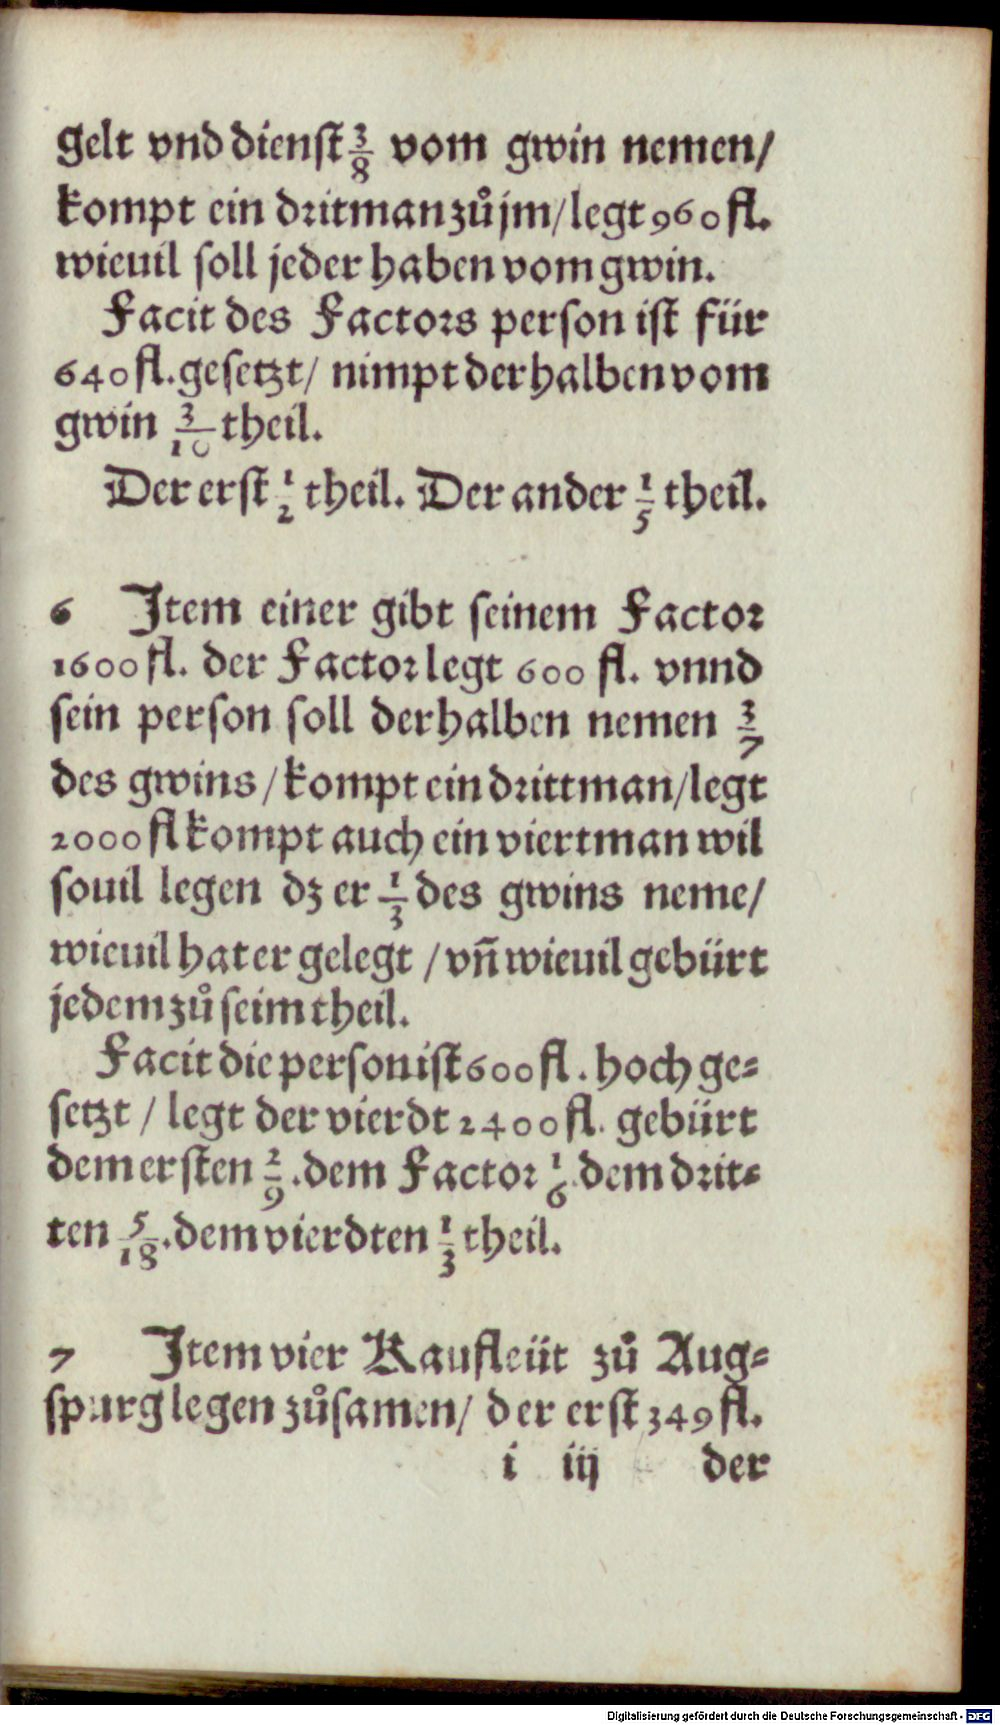 gelt vnd dienst 3/8 vom gwin nemen/
kompt ein dritman zů jm/legt 960 fl.
wieuil soll jeder haben vom gwin.
Facit des Factors person ist für
640 fl. gesetzt/ nimpt derhalben vom
gwin 3/10 theil.
Der erst 1/2 theil. Der ander 1/5 theil.
6 Item einer gibt seinem Factor
1600 fl. der Factor legt 600 fl. vnnd
sein person soll derhalben nemen 3/7
des gwins/kompt ein drittman/legt
2000 fl kompt auch ein viertman wil
souil legen dz er 1/3 des gwins neme/
wieuil hat er gelegt/vñ wieuil gebürt
jedem zů seim theil.
Facit die person ist 600 fl. hoch ge-
setzt/ legt der vierdt 2400 fl. gebürt
dem ersten 2/9. dem Factor 1/6. dem drit-
ten 5/18. dem vierdten 1/3 theil.
7 Item vier Kaufleüt zů Aug-
spurg legen zůsamen/ der erst 349 fl.
i iij der
Digitalisierung gefördert durch die Deutsche Forschungsgemeinschaft - DFG